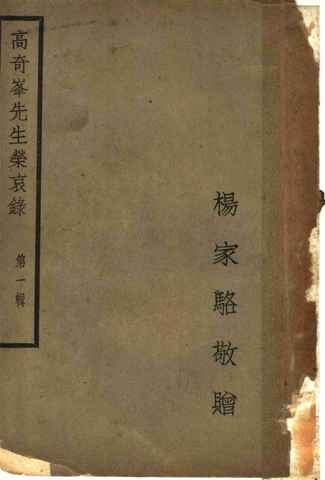 高奇峯先生榮哀錄 第一輯
楊家駱敬贈